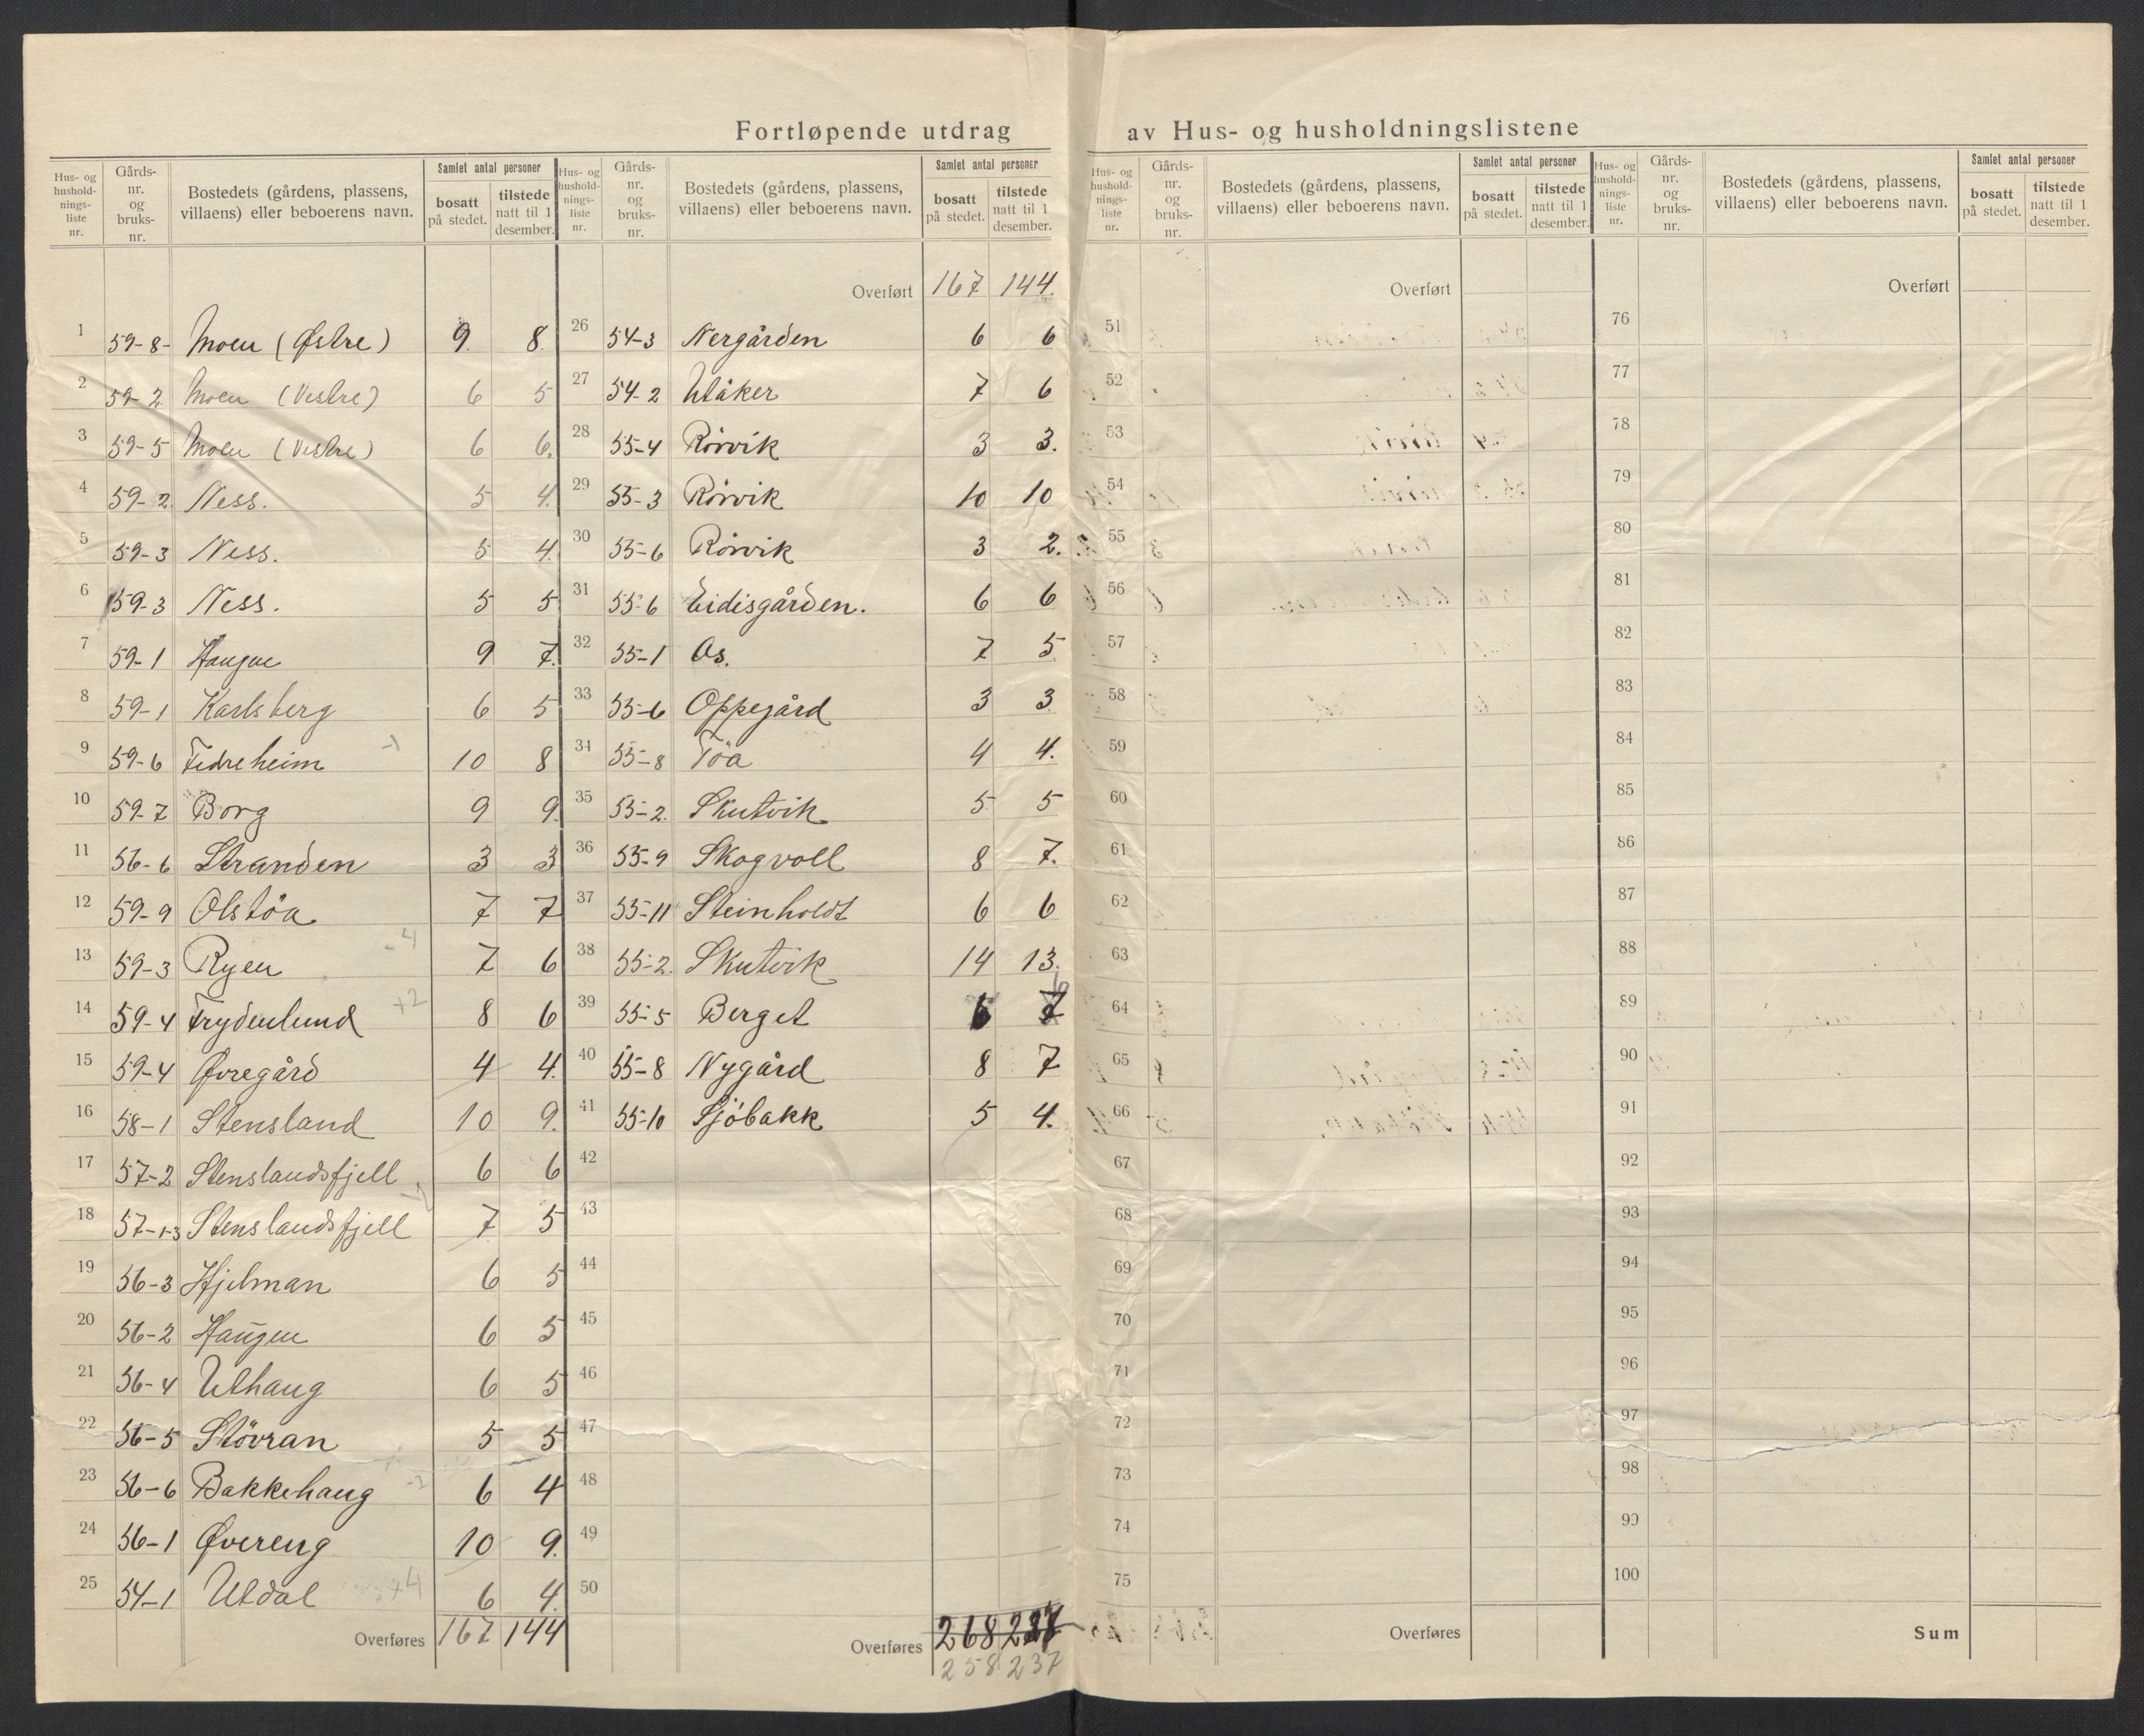 Fortløpende utdrag av Hus- og husholdningslistene
Hus- og hushold-nings-liste nr. Gårds-nr. og bruks-nr. Bostedets (gårdens, plassens, villaens) eller beboerens navn. Samlet antal personer bosatt på stedet. tilstede natt til 1 desember.
1 59-8- Moen (Østre) 9 8
2 59-2 Moen (Vestre) 6 5
3 59-5 Moen (Vestre) 6 6.
4 59-2 Ness. 5 4.
5 59-3 Ness. 5 4.
6 59-3 Ness. 5 5
7 59-1 Haugen 9 7.
8 59-1 Karlsberg 6 5
9 59-6 Fedreheim -1 10 8
10 59-7 Borg 9 9.
11 56-6 Stranden 3 3
12 59-9 Olstöa 7 7
13 59-3 Ryen -4 7 6
14 59-4 Frydenlund +2 8 6
15 59-4 Øvregård 4 4.
16 58-1 Stensland 10 9.
17 57-2 Stenslandsfjell 6 6
18 57-1-3 Stenslandsfjell 7 5
19 56-3 Hjelman 6 5
20 56-2 Haugen 6 5
21 56-4 Uthaug 6 5
22 56-5 Stövran 5 5
23 56-6 Bakkehaug -2 6 4
24 56-1 Øvereng 10 9.
25 54-1 Utdal +4 6 4.
Overføres 167 144
Hus- og hushold-nings-liste nr. Gårds-nr. og bruks-nr. Bostedets (gårdens, plassens, villaens) eller beboerens navn. Samlet antal personer bosatt på stedet. tilstede natt til 1 desember.
Overført 167 144.
26 54-3 Nergården 6 6
27 54-2 Utåker 7 6
28 55-4 Rörvik 3 3.
29 55-3 Rörvik 10 10
30 55-6 Rörvik 3 2.
31 55-6 Eidisgården. 6 6
32 55-1 Os. 7 5
33 55-6 Oppegård 3 3
34 55-8 Töa 4 4.
35 55-2. Skutvik 5 5
36 55-9 Skogvoll 8 7.
37 55-11 Steinholdt 6 6
38 55-2. Skutvik 14 13.
39 55-5 Berget 6
40 55-8 Nygård 8 7
41 55-10 Sjöbakk 5 4.
42
43
44
45
46
47
48
49
50
Overføres 268 237
258 237
Hus- og hushold-nings-liste nr. Gårds-nr. og bruks-nr. Bostedets (gårdens, plassens, villaens) eller beboerens navn. Samlet antal personer bosatt på stedet. tilstede natt til 1 desember.
Overført
51
52
53
54
55
56
57
58
59
60
61
62
63
64
65
66
67
68
69
70
71
72
73
74
75
Overføres
Hus- og hushold-nings-liste nr. Gårds-nr. og bruks-nr. Bostedets (gårdens, plassens, villaens) eller beboerens navn. Samlet antal personer bosatt på stedet. tilstede natt til 1 desember.
Overført
76
77
78
79
80
81
82
83
84
85
86
87
88
89
90
91
92
93
94
95
96
97
98
99
100
Sum